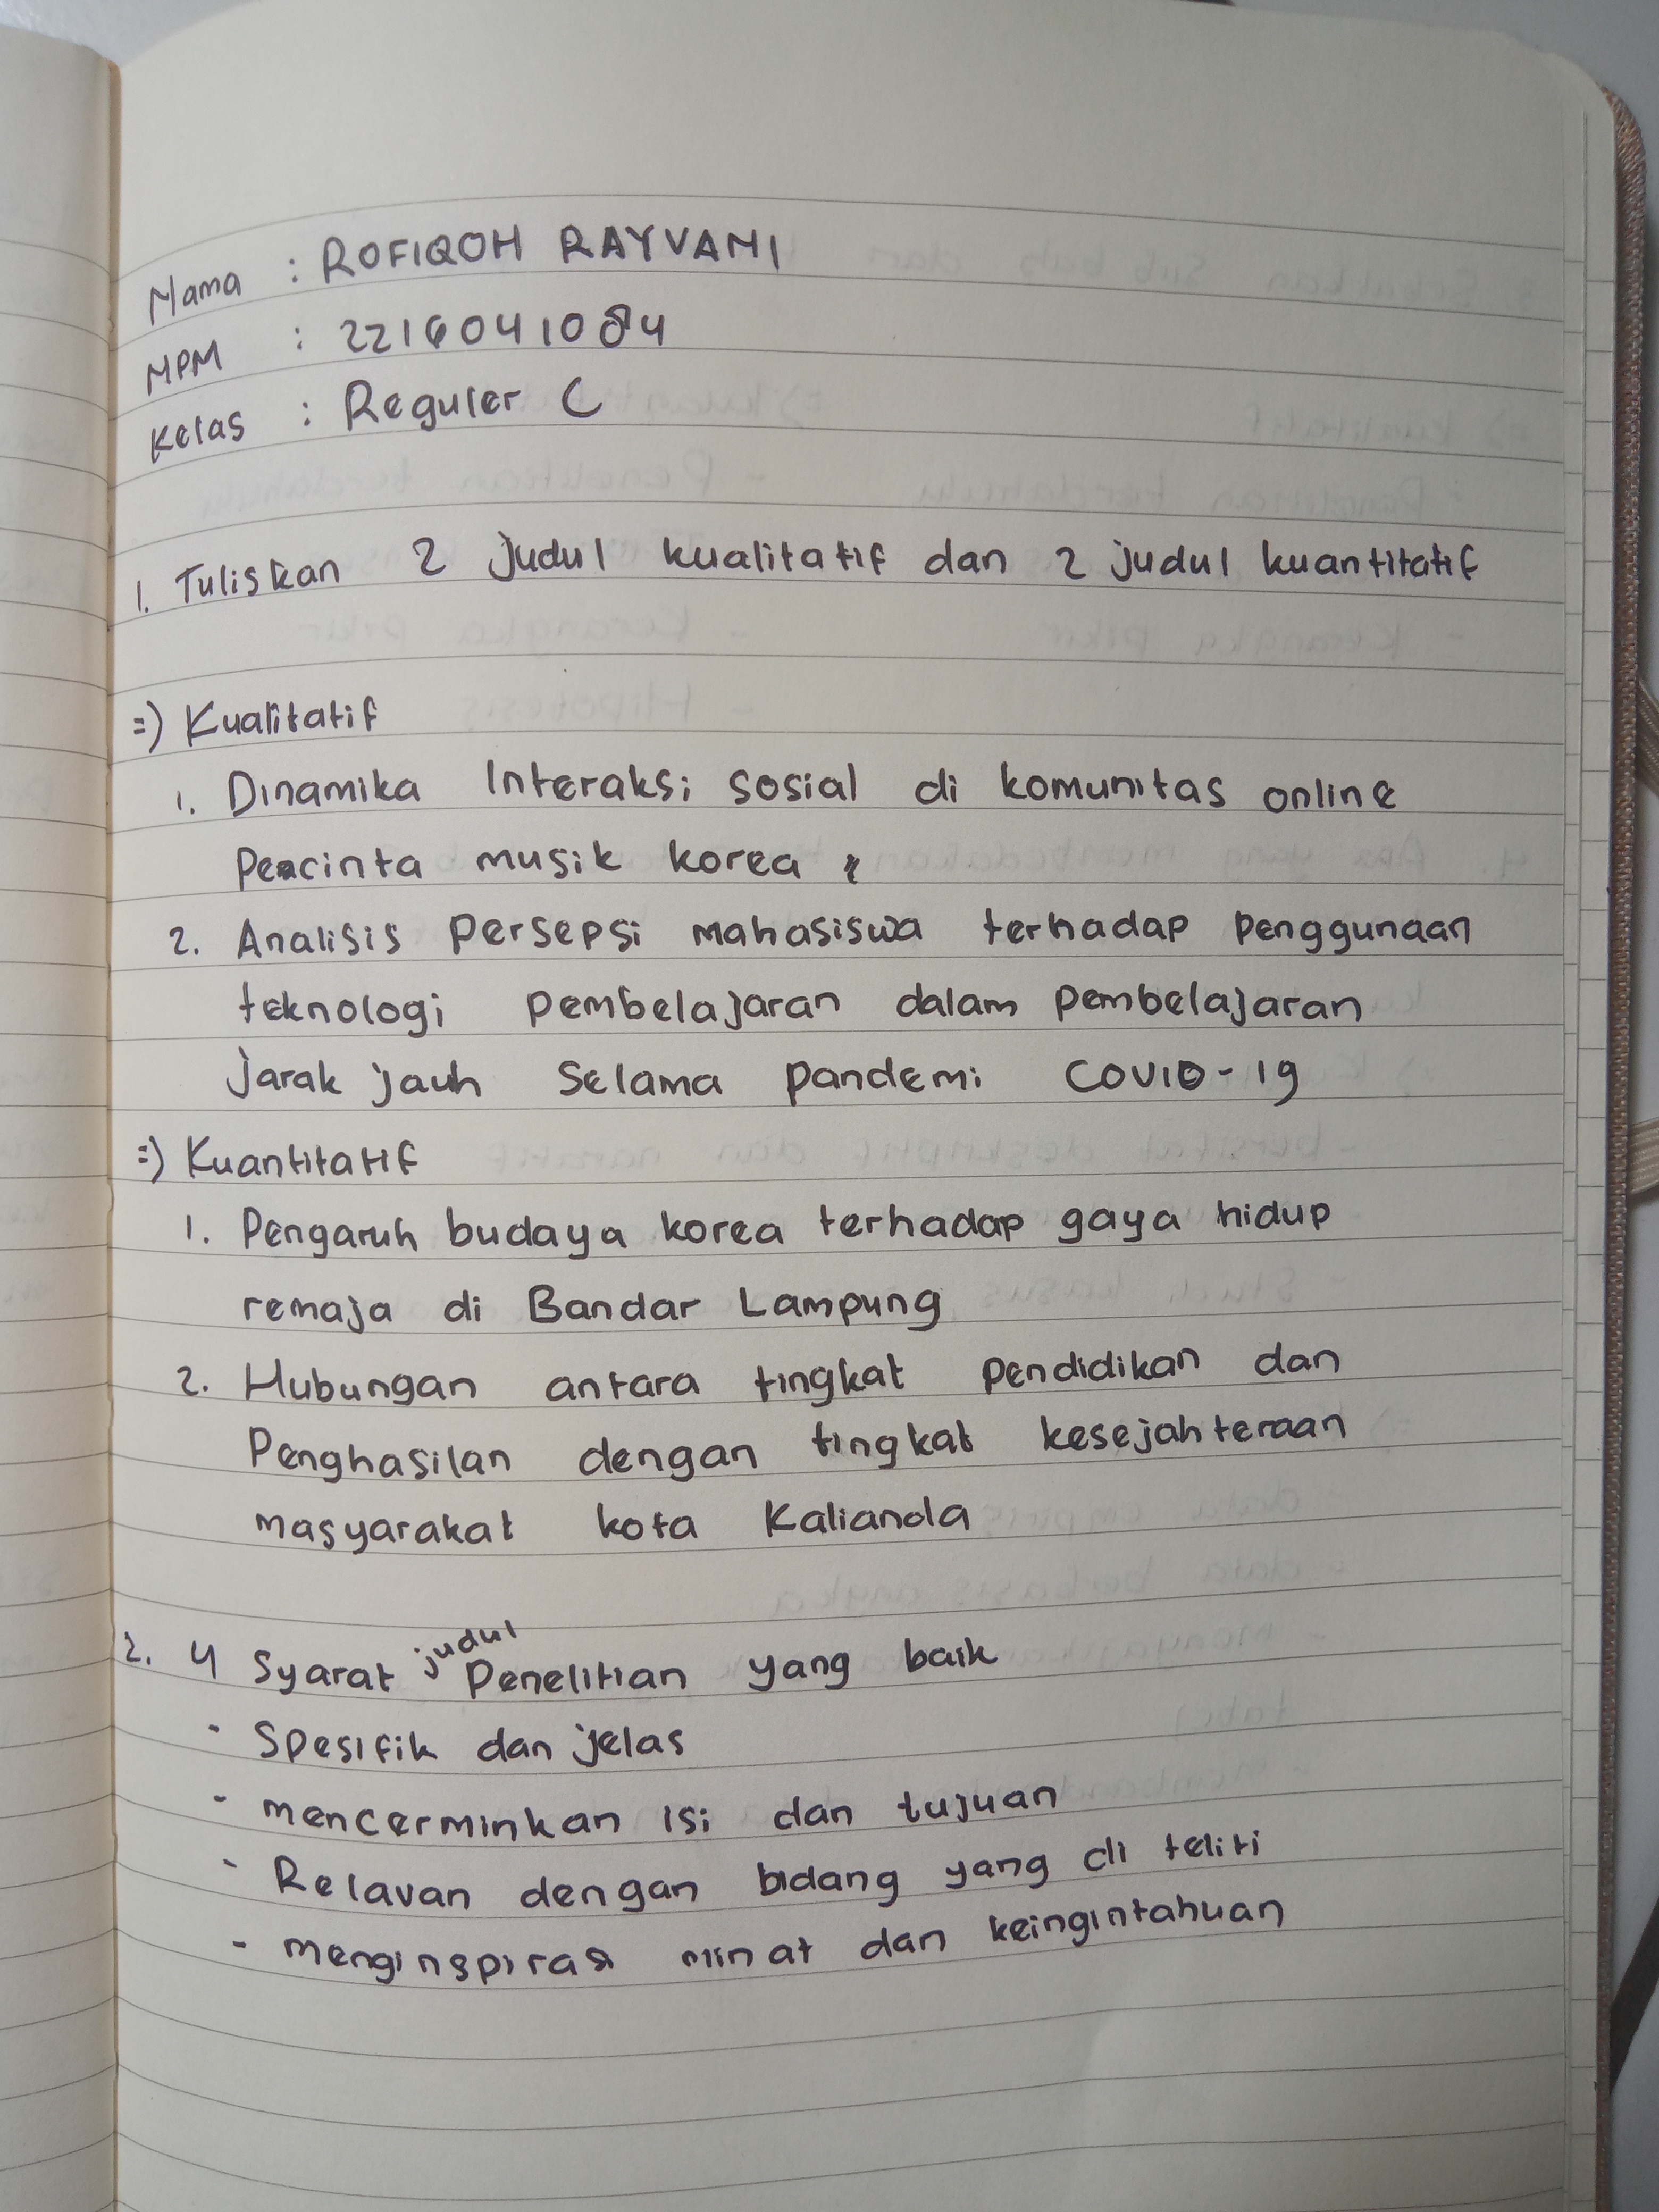 Nama : ROFIQOH RAYVANI
NPM : 2216041084
Kelas : Reguler C
1. Tuliskan 2 judul kualitatif dan 2 judul kuantitatif
=) Kualitatif
1. Dinamika Interaksi sosial di komunitas online
Pecinta musik korea
2. Analisis persepsi mahasiswa terhadap penggunaan
teknologi pembelajaran dalam pembelajaran
jarak jauh selama pandemi COVID-19
=) Kuantitatif
1. Pengaruh budaya korea terhadap gaya hidup
remaja di Bandar Lampung
2. Hubungan antara tingkat pendidikan dan
Penghasilan dengan tingkat kesejahteraan
masyarakat kota Kalianda
2. 4 Syarat judul Penelitian yang baik
- Spesifik dan jelas
- mencerminkan isi dan tujuan
- Relavan dengan bidang yang di teliti
- menginspirasi minat dan keingintahuan